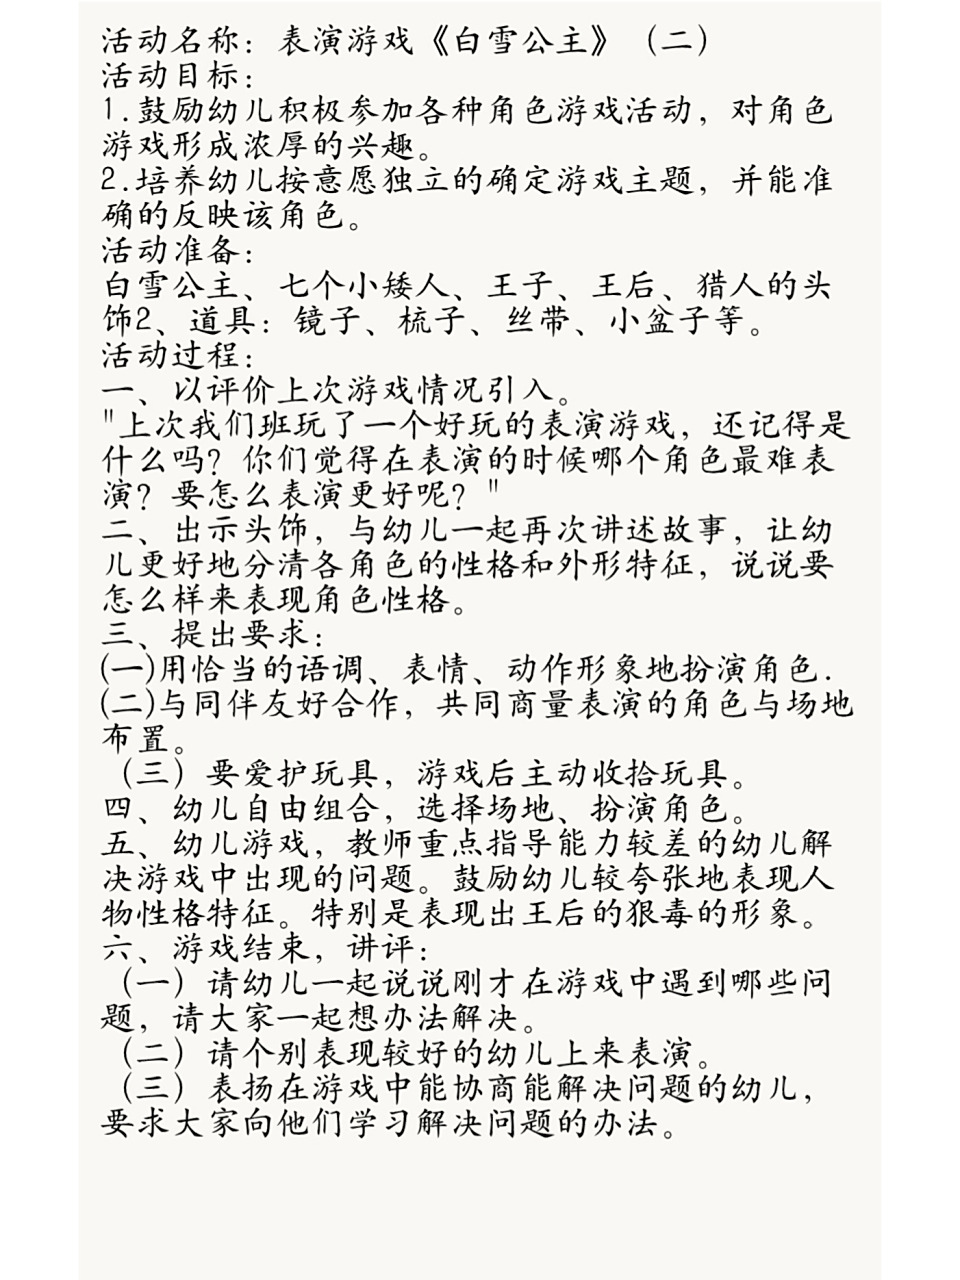 活动名称：表演游戏《白雪公主》（二）
活动目标：
1.鼓励幼儿积极参加各种角色游戏活动，对角色
游戏形成浓厚的兴趣。
2.培养幼儿按意愿独立的确定游戏主题，并能准
确的反映该角色。
活动准备：
白雪公主、七个小矮人、王子、王后、猎人的头
饰2、道具：镜子、梳子、丝带、小盆子等。
活动过程：
一、以评价上次游戏情况引入。
"上次我们班玩了一个好玩的表演游戏，还记得是
什么吗？你们觉得在表演的时候哪个角色最难表
演？要怎么表演更好呢？"
二、出示头饰，与幼儿一起再次讲述故事，让幼
儿更好地分清各角色的性格和外形特征，说说要
怎么样来表现角色性格。
三、提出要求：
(一)用恰当的语调、表情、动作形象地扮演角色.
(二)与同伴友好合作，共同商量表演的角色与场地
布置。
（三）要爱护玩具，游戏后主动收拾玩具。
四、幼儿自由组合，选择场地、扮演角色。
五、幼儿游戏，教师重点指导能力较差的幼儿解
决游戏中出现的问题。鼓励幼儿较夸张地表现人
物性格特征。特别是表现出王后的狠毒的形象。
六、游戏结束，讲评：
（一）请幼儿一起说说刚才在游戏中遇到哪些问
题，请大家一起想办法解决。
（二）请个别表现较好的幼儿上来表演。
（三）表扬在游戏中能协商能解决问题的幼儿，
要求大家向他们学习解决问题的办法。